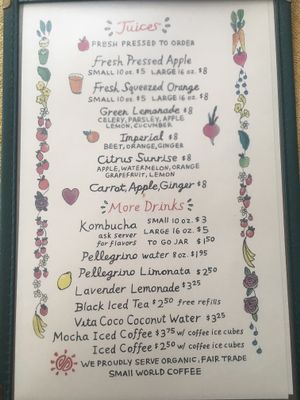 Juices
FRESH PRESSED TO ORDER
Fresh Pressed Apple
SMALL 10 oz. $5 LARGE 16 oz. $8
Fresh Squeezed Orange
SMALL 10 oz. $5 LARGE 16 oz. $8
Green Lemonade $8
CELERY, PARSLEY, APPLE
LEMON, CUCUMBER
Imperial $8
BEET, ORANGE, GINGER
Citrus Sunrise $8
APPLE, WATERMELON, ORANGE
GRAPEFRUIT, LEMON
Carrot, Apple, Ginger $8
More Drinks
Kombucha SMALL 10 oz. $3
ask server LARGE 16 oz. $5
for flavors TO GO JAR $1.50
Pellegrino water 8 oz. $1.95
Pellegrino Limonata $2.50
Lavender Lemonade $3.25
Black Iced Tea $2.50 free refills
Vita Coco Coconut Water $3.25
Mocha Iced Coffee $3.75 w/ coffee ice cubes
Iced Coffee $2.50 w/ coffee ice cubes
WE PROUDLY SERVE ORGANIC, FAIR TRADE
SMALL WORLD COFFEE